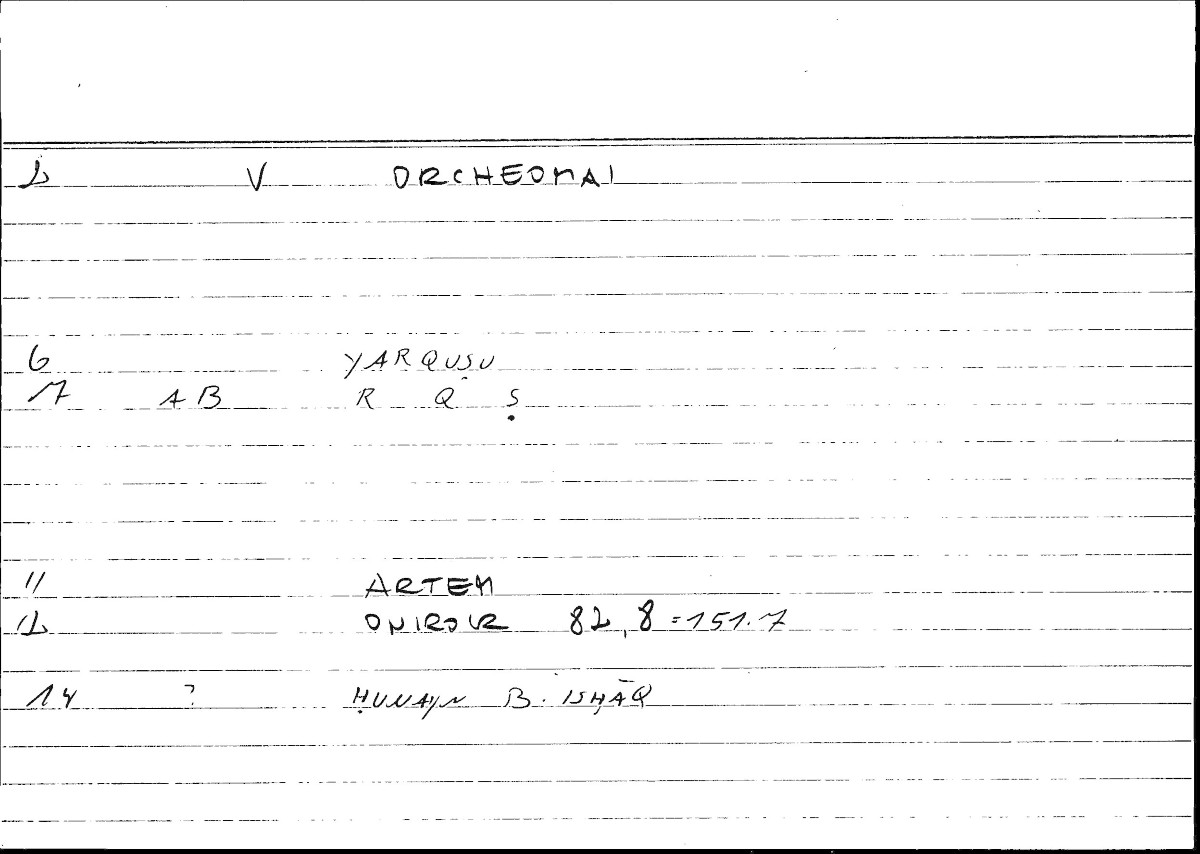 2 V ORCHEOMAI
6 YARQUṢU
7 AB R Q Ṣ
11 ARTEM
12 ONIROCR 82,8=151.7
14 ? ḤUNAYN B. ISḤĀQ